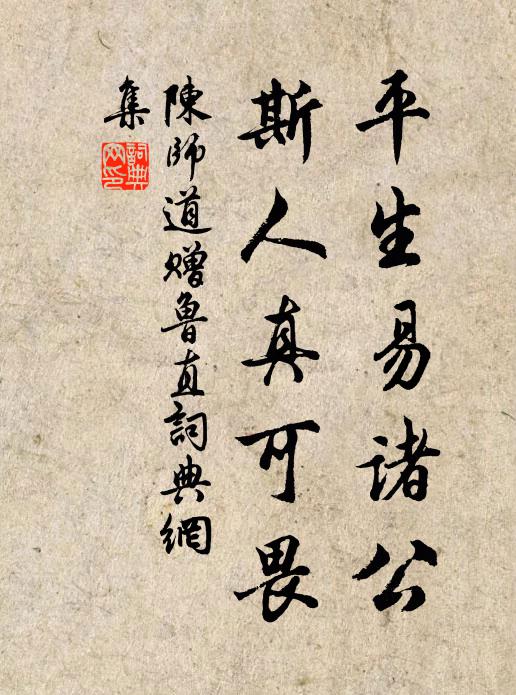 平生易諸公
斯人真可畏
陳師道贈魯直詞典網
集
詞典
网印